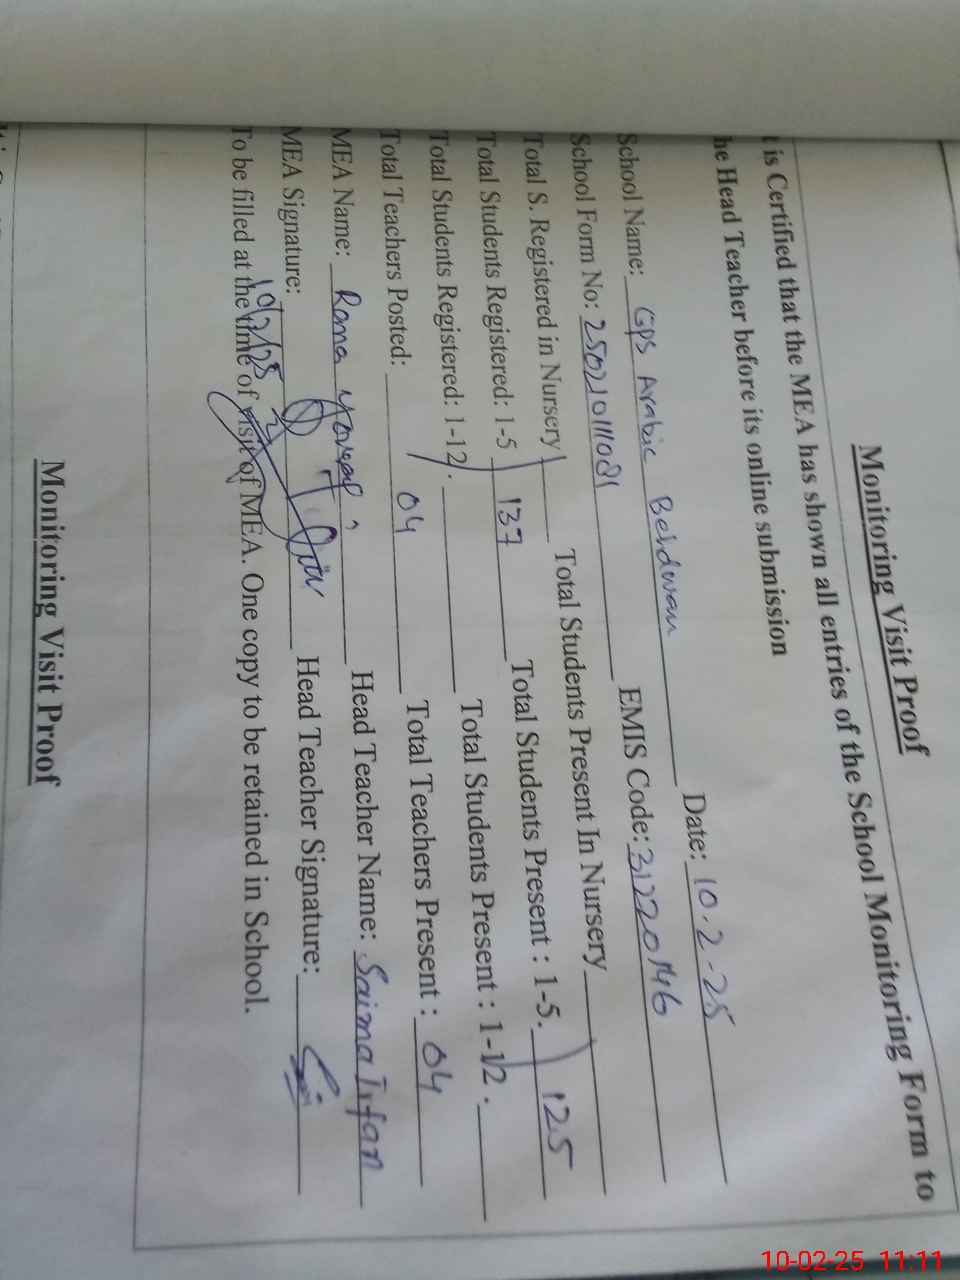 Monitoring Visit Proof
t is Certified that the MEA has shown all entries of the School Monitoring Form to
he Head Teacher before its online submission
School Name: GPS Arabic Beldwan Date: 10.2-25
School Form No: EMIS Code: 31220146
Total S. Registered in Nursery Total Students Present In Nursery
Total Students Registered: 1-5 137 Total Students Present : 1-5. 125
Total Students Registered: 1-12. Total Students Present : 1-12.
Total Teachers Posted: 04 Total Teachers Present : 04
MEA Name: Rana Head Teacher Name: Saima Irfan
MEA Signature: Head Teacher Signature:
10/2/25
To be filled at the time of visit of MEA. One copy to be retained in School.
Monitoring Visit Proof
10-02-25 11:11